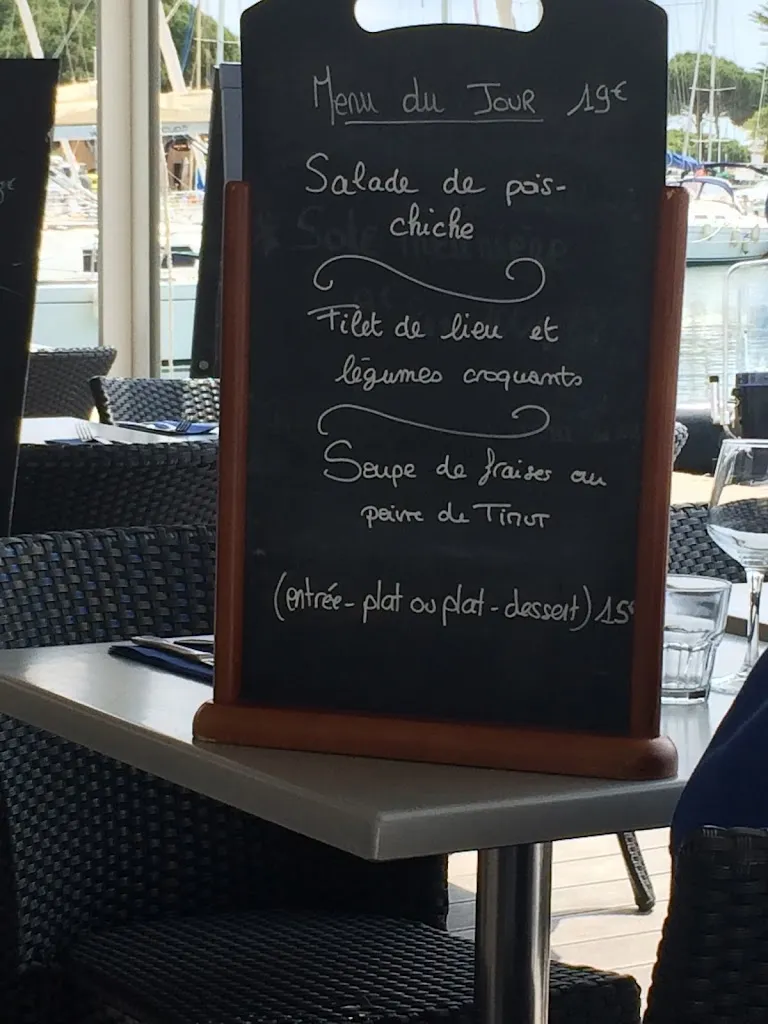 Menu du Jour 19€
Salade de pois-
chiche
Filet de lieu et
légumes croquants
Soupe de fraises au
poivre de Timur
(entrée - plat ou plat - dessert) 15€